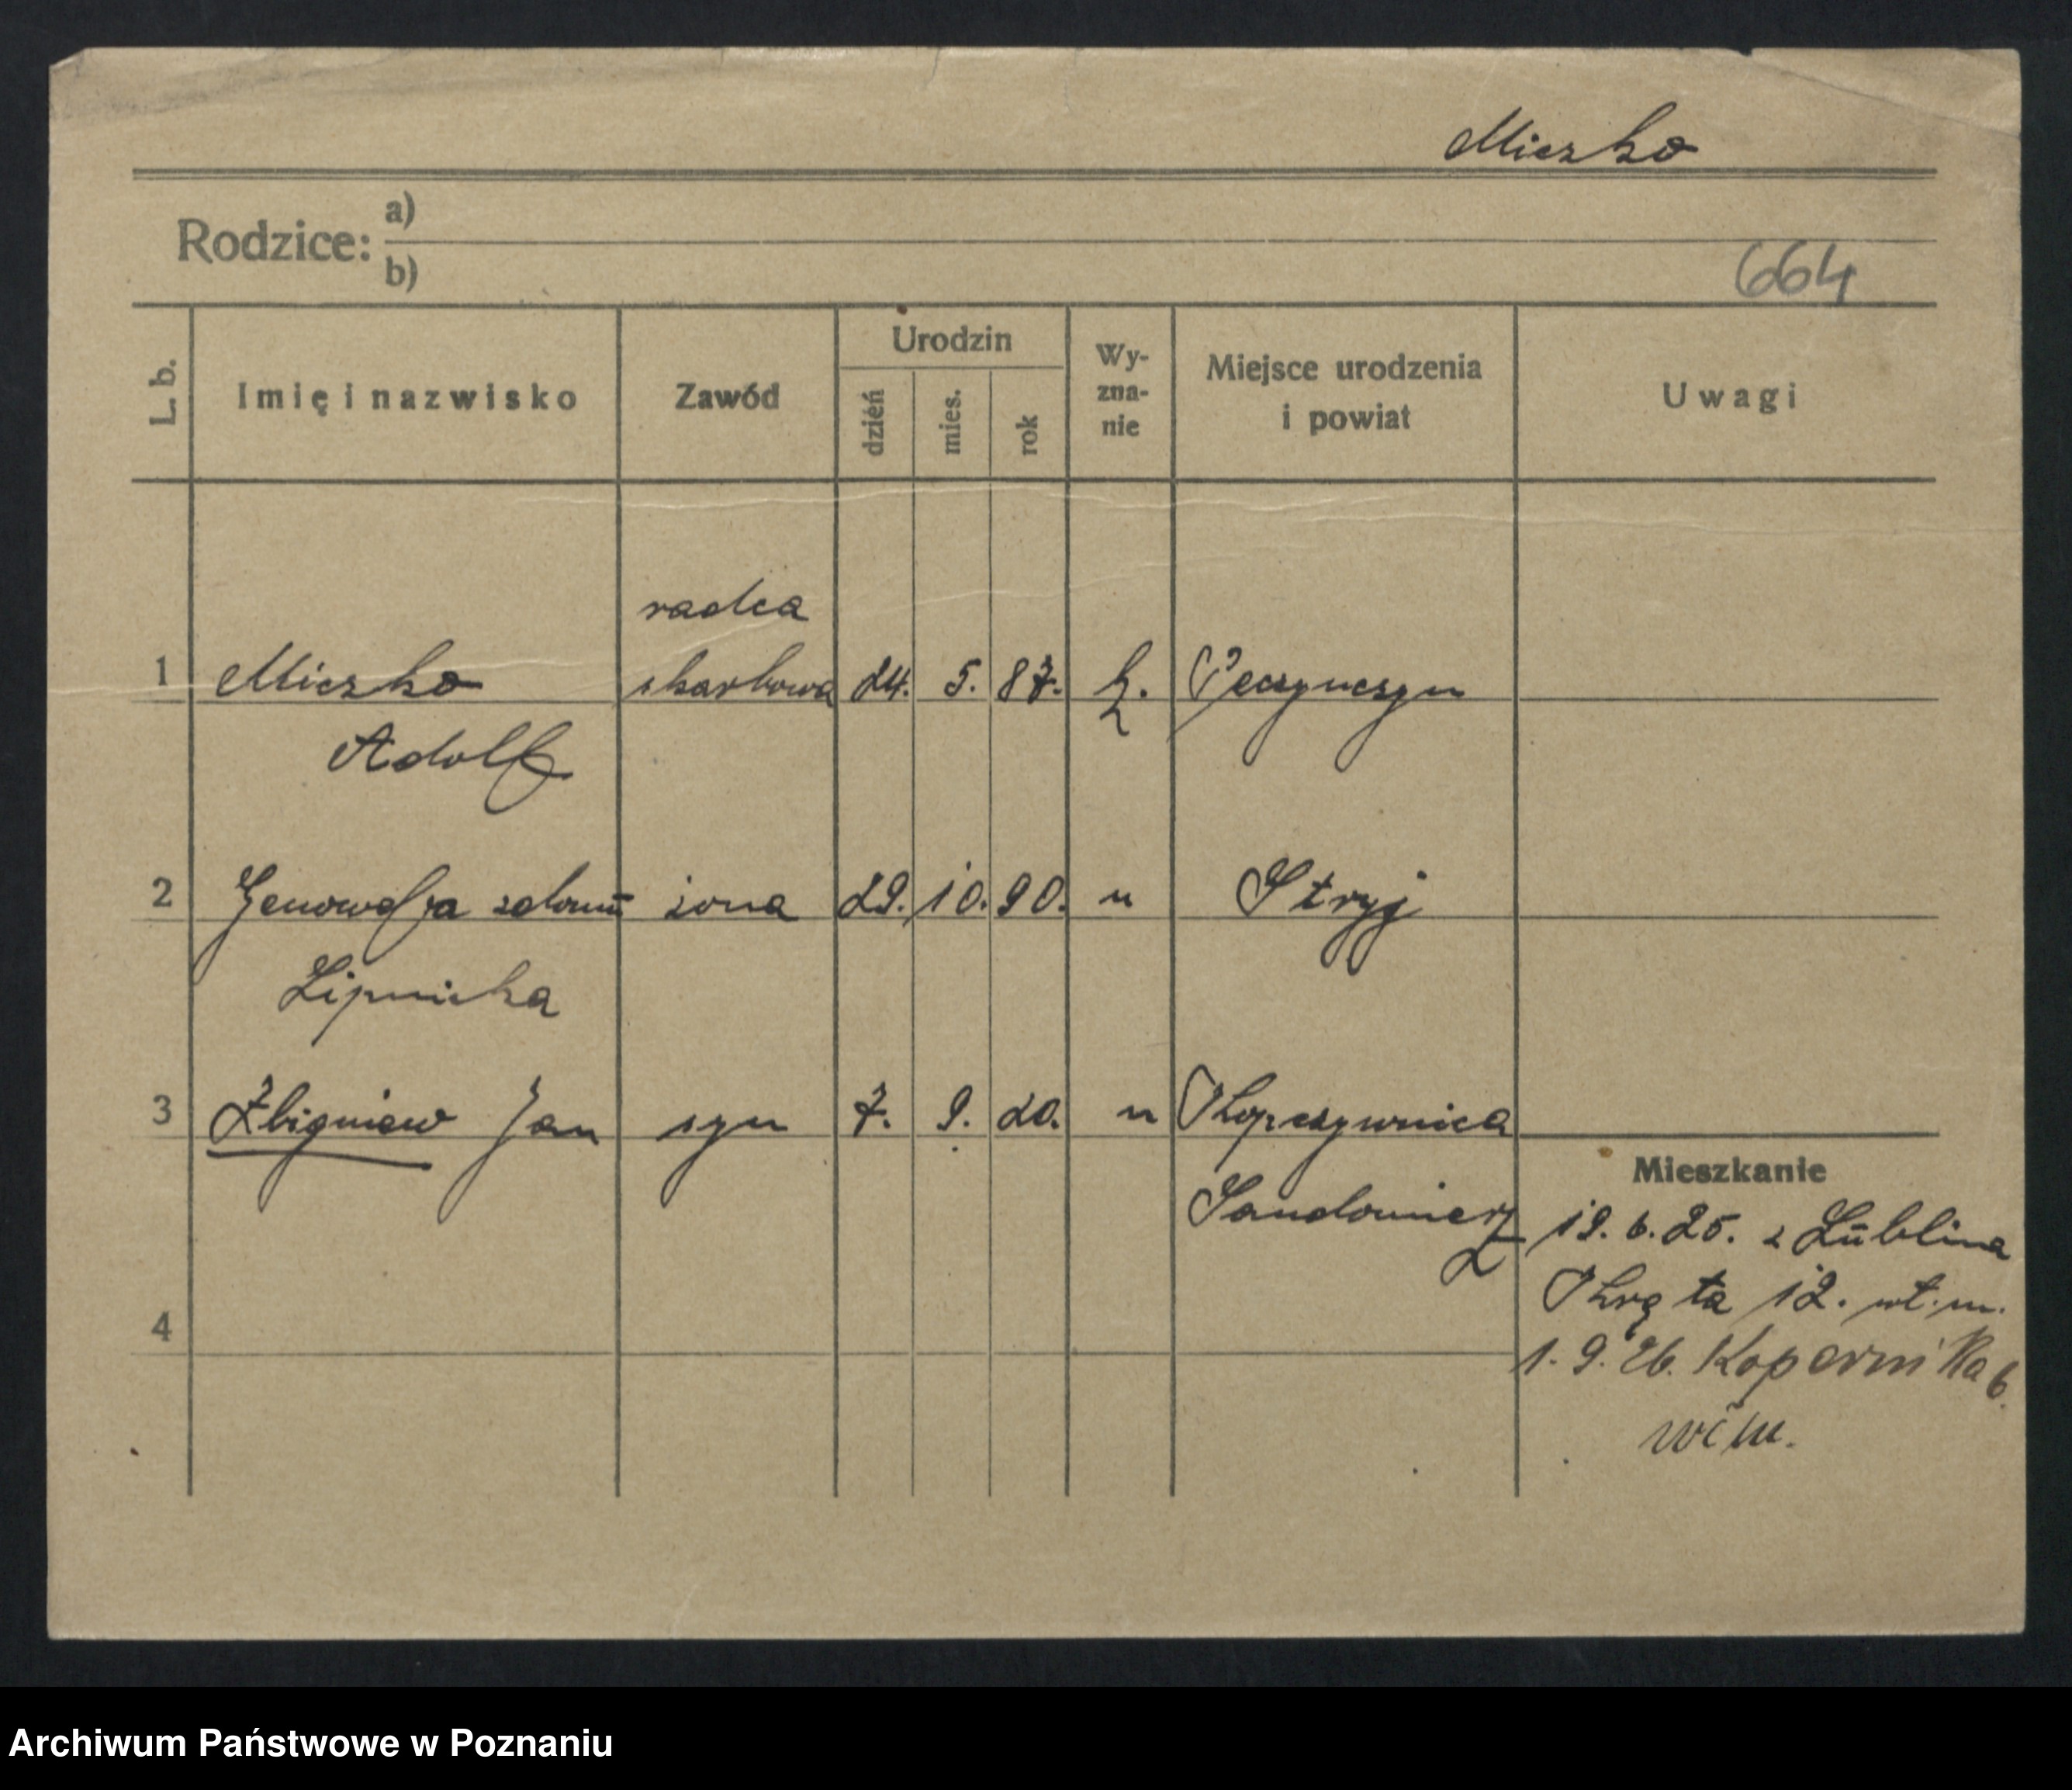 Miczko
Rodzice:
a)
b)
664
L. b.
Imię i nazwisko
Zawód
Urodzin
dzień
mies.
rok
Wy-
zna-
nie
Miejsce urodzenia
i powiat
Uwagi
radca
1 Miczko skarbowa 24. 5. 87. k. Peczyneszyn
Adolf
2 Genowefja z domu żona 29. 10. 90. " Stryj
Lipnicka
3 Zbigniew Jan syn 7. 9. 20. " Kopczywnica
Sandomierz
Mieszkanie
19. 6. 25. z Lublina
12. wt. m.
4
1. 9. 26. Kopernika 6.
Archiwum Państwowe w Poznaniu